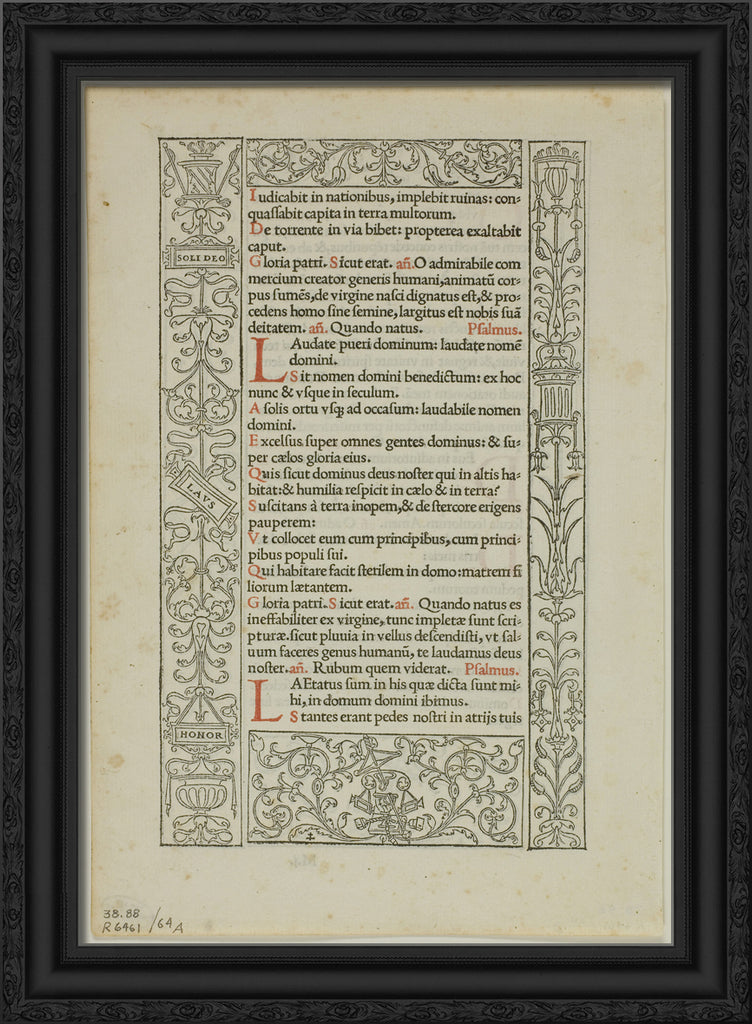 Iudicabit in nationibus, implebit ruinas: con⸗
quaſſabit capita in terra multorum.
De torrente in via bibet: propterea exaltabit
caput.
Gloria patri. Sicut erat. añ. O admirabile com
mercium creator generis humani, animatū cor⸗
pus ſumēs, de virgine naſci dignatus eſt, & pro⸗
cedens homo ſine ſemine, largitus eſt nobis ſuā
deitatem. añ. Quando natus. Pſalmus.
LAudate pueri dominum: laudate nomē
domini.
Sit nomen domini benedictum: ex hoc
nunc & vſque in ſeculum.
A ſolis ortu vſq; ad occaſum: laudabile nomen
domini.
Excelſus ſuper omnes gentes dominus: & ſu⸗
per cælos gloria eius.
Quis ſicut dominus deus noſter qui in altis ha⸗
bitat: & humilia reſpicit in cælo & in terra?
Suſcitans à terra inopem, & de ſtercore erigens
pauperem:
Vt collocet eum cum principibus, cum princi⸗
pibus populi ſui.
Qui habitare facit ſterilem in domo: matrem fi
liorum lætantem.
Gloria patri. Sicut erat. añ. Quando natus es
ineffabiliter ex virgine, tunc impletæ ſunt ſcri⸗
pturæ. ſicut pluuia in vellus deſcendiſti, vt ſal⸗
uum faceres genus humanū, te laudamus deus
noſter. añ. Rubum quem viderat. Pſalmus.
LAEtatus ſum in his quæ dicta ſunt mi⸗
hi, in domum domini ibimus.
Stantes erant pedes noſtri in atrijs tuis
SOLI DEO
LAVS
HONOR
38.88
R6461 /64A